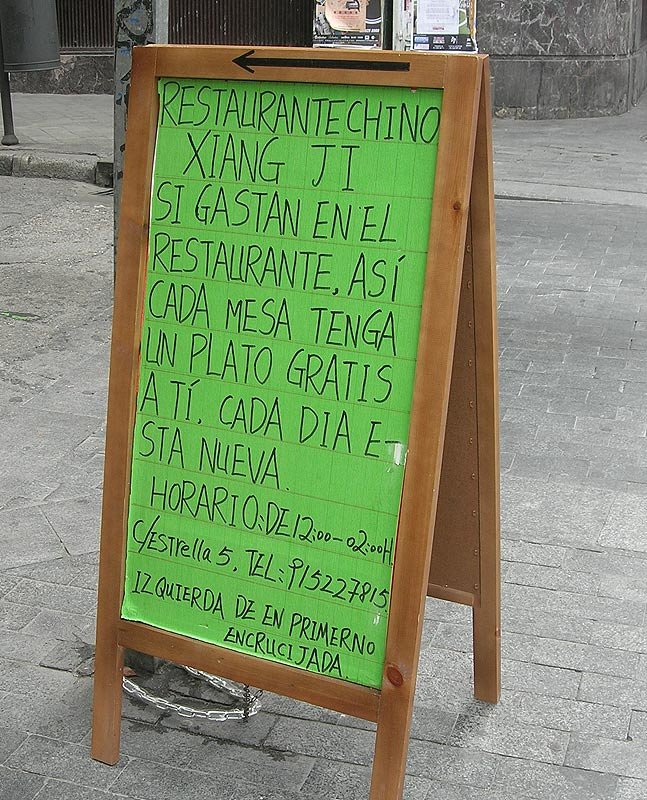 RESTAURANTE CHINO
XIANG JI
SI GASTAN EN EL
RESTAURANTE, ASÍ
CADA MESA TENGA
UN PLATO GRATIS
A TÍ. CADA DIA E-
STA NUEVA.
HORARIO: DE 12:00-02:00H.
C/Estrella 5, TEL: 915227815
IZQUIERDA DE EN PRIMERNO
ENCRUCIJADA.